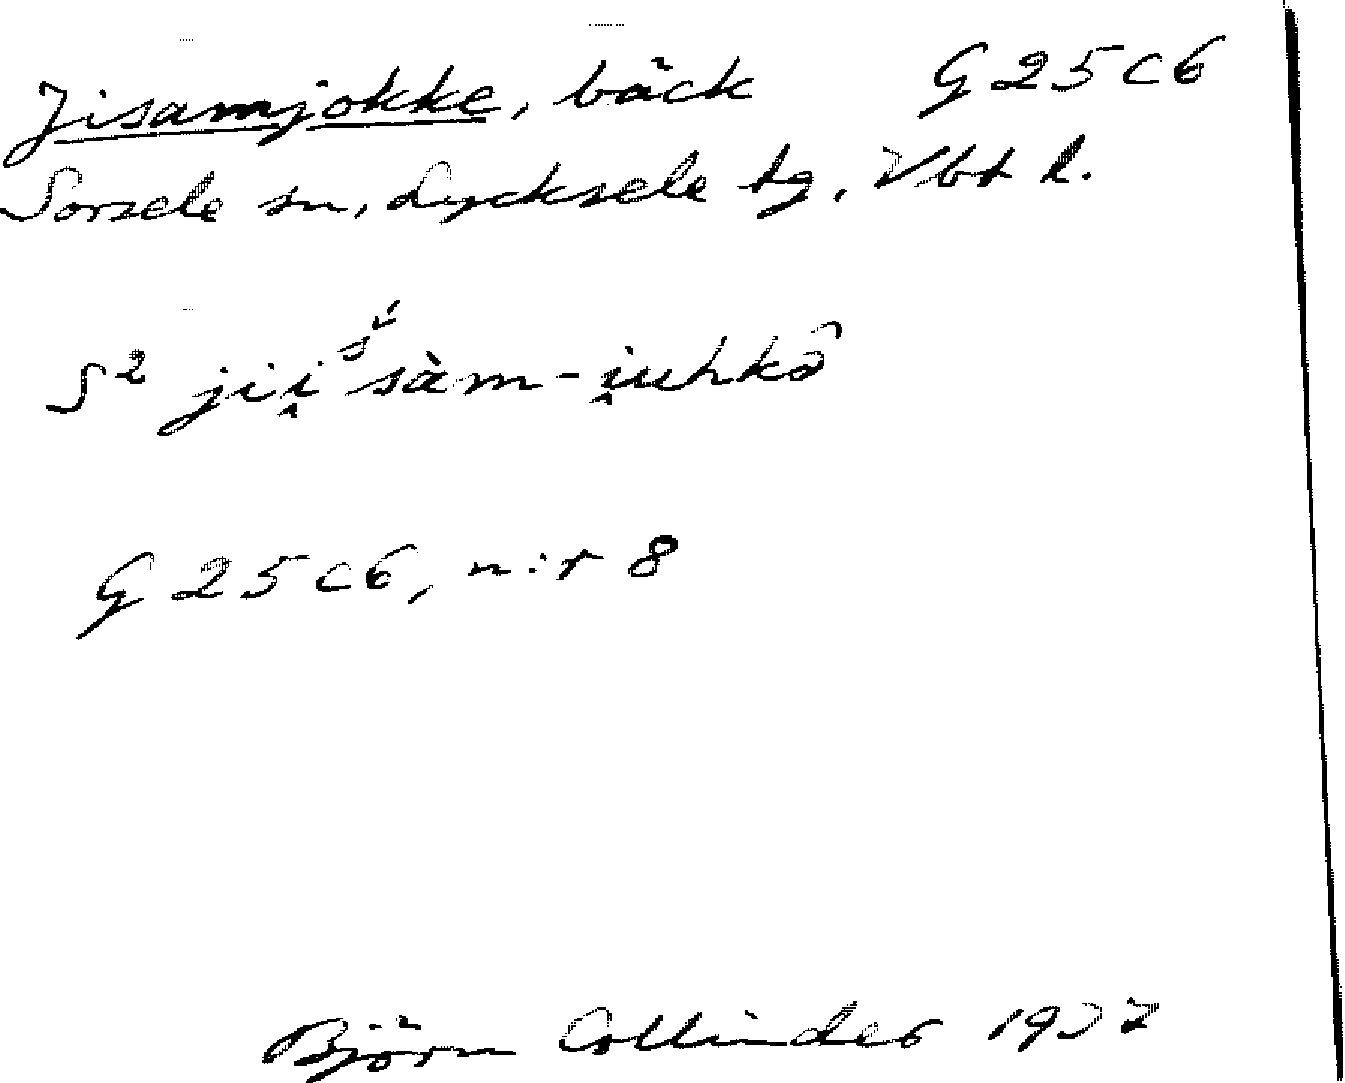 Jisamjokke, bäck G25C6
Sorsele sn, Lycksele tg, Vbt l.
S² jii̭ˢ́sàm-i̭uhkô
G25C6, n:r 8
Björn Collinder 1937